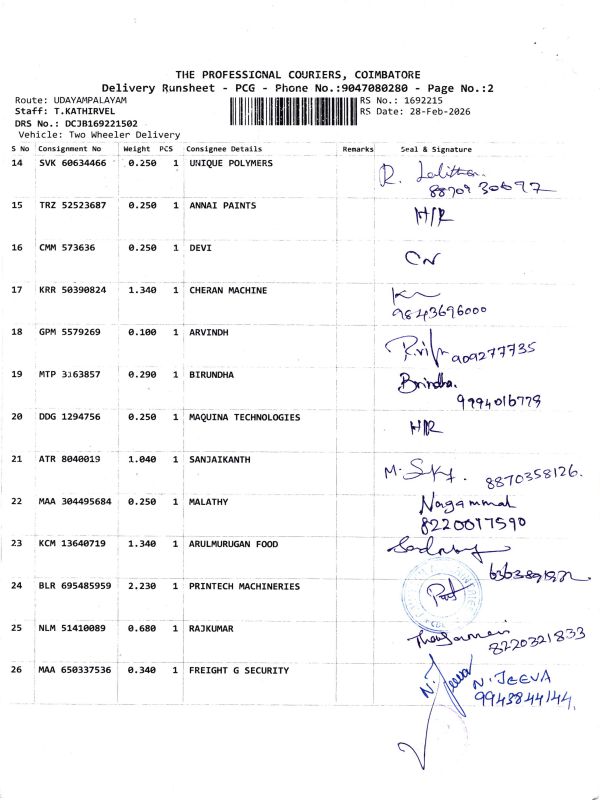 THE PROFESSIONAL COURIERS, COIMBATORE
Delivery Runsheet - PCG - Phone No.:9047080280 - Page No.:2
Route: UDAYAMPALAYAM RS No.: 1692215
Staff: T.KATHIRVEL RS Date: 28-Feb-2026
DRS No.: DCJB169221502
Vehicle: Two Wheeler Delivery
S No Consignment No Weight PCS Consignee Details Remarks Seal & Signature
14 SVK 60634466 0.250 1 UNIQUE POLYMERS R. Lalitha.
15 TRZ 52523687 0.250 1 ANNAI PAINTS H/R
16 CMM 573636 0.250 1 DEVI CN
17 KRR 50390824 1.340 1 CHERAN MACHINE
9843696000
18 GPM 5579269 0.100 1 ARVINDH 909277735
19 MTP 3163857 0.290 1 BIRUNDHA Brindha.
9994016779
20 DDG 1294756 0.250 1 MAQUINA TECHNOLOGIES H/R
21 ATR 8040019 1.040 1 SANJAIKANTH M. 8870358126.
22 MAA 304495684 0.250 1 MALATHY Nagammal
8220017590
23 KCM 13640719 1.340 1 ARULMURUGAN FOOD
24 BLR 695485959 2.230 1 PRINTECH MACHINERIES
25 NLM 51410089 0.680 1 RAJKUMAR
8220321833
26 MAA 650337536 0.340 1 FREIGHT G SECURITY N. Jeeva N. JEEVA
9943844144.